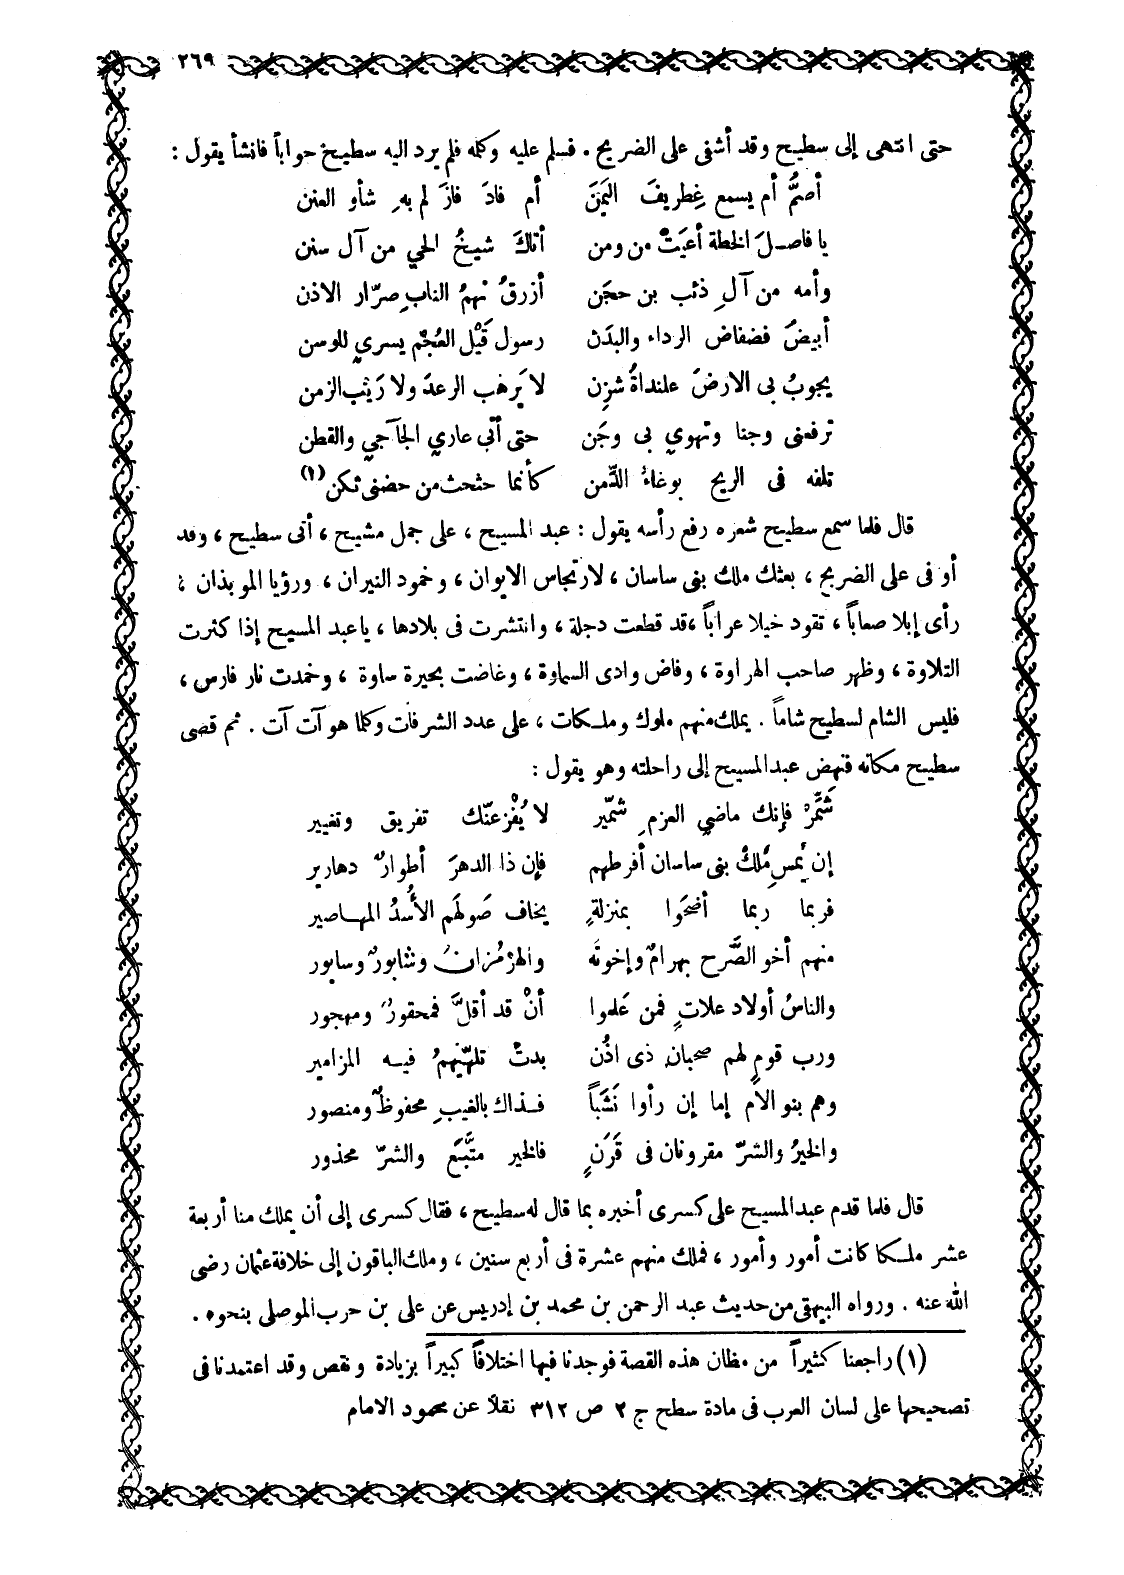 ٢٦٩
حتى انتهى إلى سطيح وقد أشفى على الضريح . فسلم عليه وكلمه فلم يرد اليه سطيح جواباً فانشأ يقول :
أصمُّ أم يسمع غِطريفَ اليَمَنَ أم فادَ فازَ لم بهِ شأو العنن
يا فاصلَ الخطة أعيَتْ من ومن أتاكَ شيخُ الحي من آل سنن
وأمه من آلِ ذئب بن حجَن أزرقُ نهمُ النابِ صرّار الاذن
أبيضَ فضفاض الرداء والبدَن رسول قَيْل العُجْم يسري للوسن
يجوبُ بى الارضَ علنداةُ شزِن لا يَرهب الرعدَ ولا رَيْب الزمن
ترفعنى وجنا وتهوي بى وجَن حتى أتى عاري الجآجي والقطن
تلفه فى الريح بوغاءُ الدَّمن كأنما حثحث من حضنى ثكن (١)
قال فلما سمع سطيح شعره رفع رأسه يقول : عبد المسيح ، على جمل مشيح ، أتى سطيح ، وقد
أوفى على الضريح ، بعثك ملك بنى ساسان ، لارتجاس الايوان ، وخمود النيران ، ورؤيا الموبذان ؛
رأى إبلا صعاباً ، تقود خيلا عراباً ، قد قطعت دجلة ، وانتشرت فى بلادها ، يا عبد المسيح إذا كثرت
التلاوة ، وظهر صاحب الهراوة ، وفاض وادى السماوة ، وغاضت بحيرة ساوة ، وخمدت نار فارس ،
فليس الشام لسطيح شاماً . يملك منهم ملوك وملكات ، على عدد الشرفات وكلما هو آت آت . ثم قضى
سطيح مكانه فنهض عبد المسيح إلى راحلته وهو يقول :
شَمَّرْ فإنك ماضي العزم شمّير لا يُفْزعنّك تفريق وتغيير
إن يُمسِ مُلكُ بنى ساسان أفرطهم فإن ذا الدهرَ أطوارٌ دهارير
فربما ربما أضحَوا بمنزلةٍ يخاف صَولهَم الأُسدُ المهاصير
منهم أخو الصَّرح بهرامُ وإخوتَه والهرْمُزانُ وشابورٌ وسابور
والناسُ أولاد علاتٍ فمن عَلموا أنْ قد أقلَّ فمحقورٌ ومهجور
ورب قومٍ لهم صحبان ذى اذُن بدتْ تلهّيهمُ فيه المزامير
وهم بنو الأم إما إن رأوا نَشَباً فذاك بالغيبِ محفوظٌ ومنصور
والخيرُ والشرّ مقرونان فى قَرَنٍ فالخير متّبَع والشرّ محذور
قال فلما قدم عبد المسيح على كسرى أخبره بما قال له سطيح ، فقال كسرى إلى أن يملك منا أربعة
عشر ملكا كانت أمور وأمور ، فملك منهم عشرة فى أربع سنين ، وملك الباقون إلى خلافة عثمان رضى
الله عنه . ورواه البيهقى من حديث عبد الرحمن بن محمد بن إدريس عن على بن حرب الموصلى بنحوه .
(١) راجعنا كثيراً من مظان هذه القصة فوجدنا فيها اختلافاً كبيراً بزيادة ونقص وقد اعتمدنا فى
تصحيحها على لسان العرب فى مادة سطح ج ٢ ص ٣١٢ نقلاً عن محمود الامام